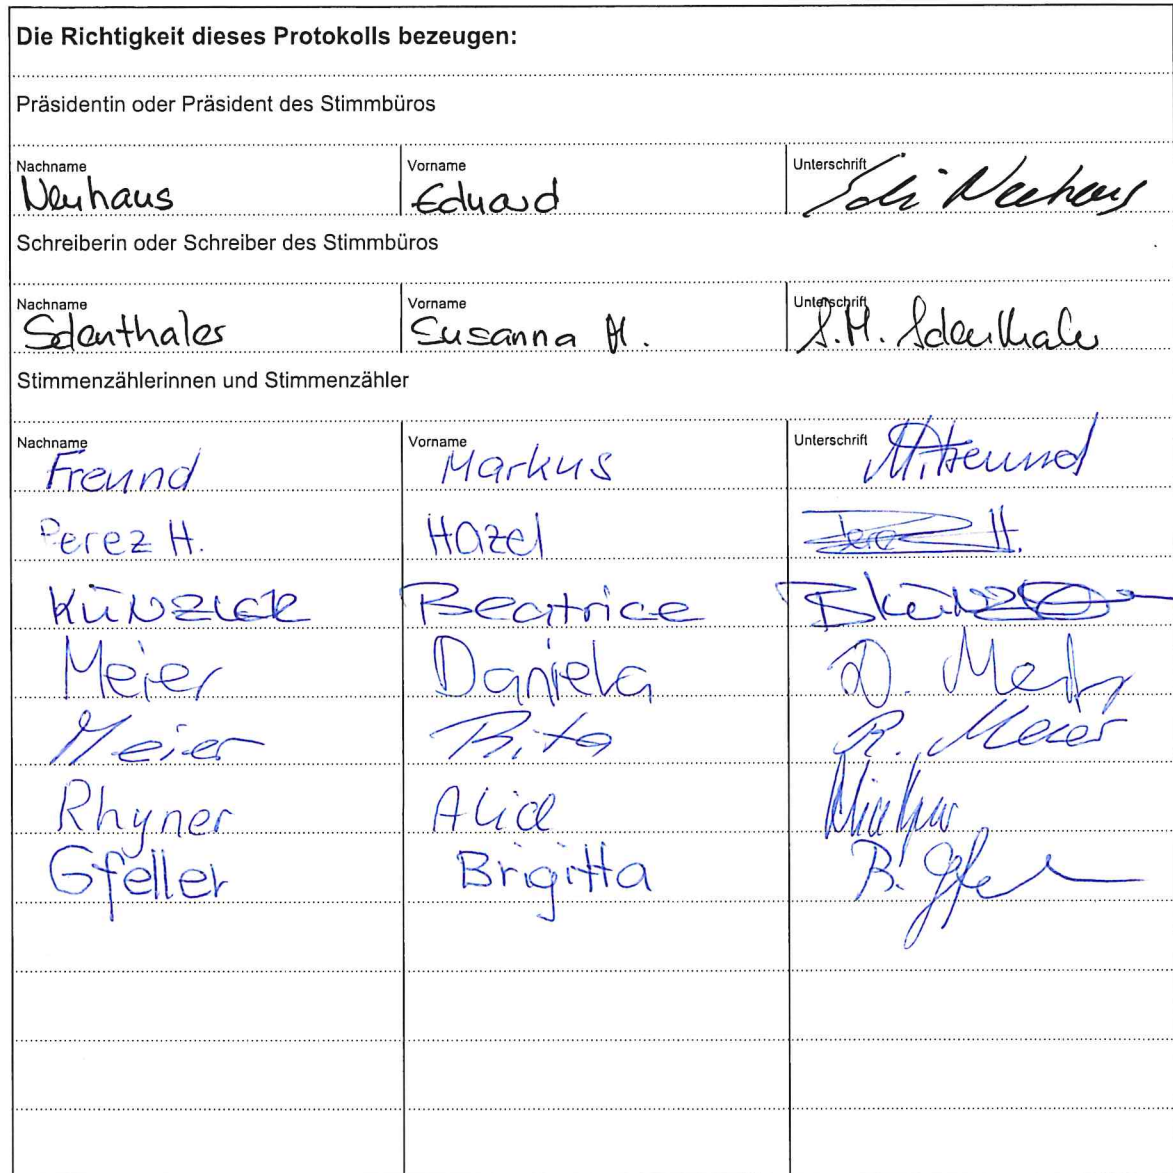 Die Richtigkeit dieses Protokolls bezeugen:
Präsidentin oder Präsident des Stimmbüros
Nachname Vorname Unterschrift
Neuhaus Eduard Edi Neuhaus
Schreiberin oder Schreiber des Stimmbüros
Nachname Vorname Unterschrift
Susanna M. S.M.
Stimmenzählerinnen und Stimmenzähler
Nachname Vorname Unterschrift
Freund Markus M. Freund
Perez H. Hazel Perez H.
Künzler Beatrice
Meier Daniela D.
Meier Rita R. Meier
Rhyner Alice
Gfeller Brigitta B.